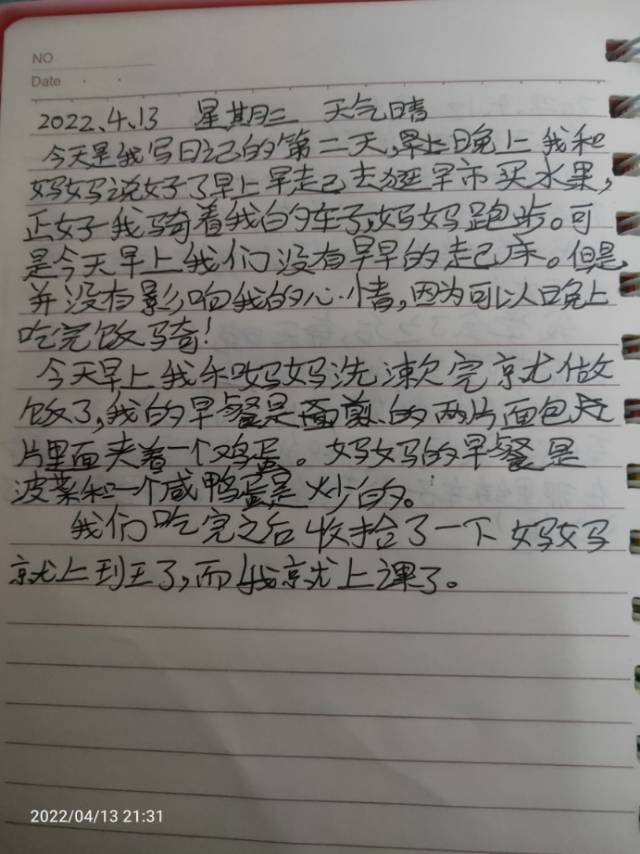 NO
Date
2022.4.13 星期三 天气晴
今天是我写日记的第二天,晚上我和
妈妈说好了早上早起去逛早市买水果,
正好我骑着我的车子,妈妈跑步。可
是今天早上我们没有早早的起床。但是,
并没有影响我的心情,因为可以晚上
吃完饭骑!
今天早上我和妈妈洗漱完就做
饭了,我的早餐是煎的两片面包片
片里面夹着一个鸡蛋。妈妈的早餐是
菠菜和一个咸鸭蛋是炒的。
我们吃完之后收拾了一下妈妈
就上班了,而我就上课了。
2022/04/13 21:31